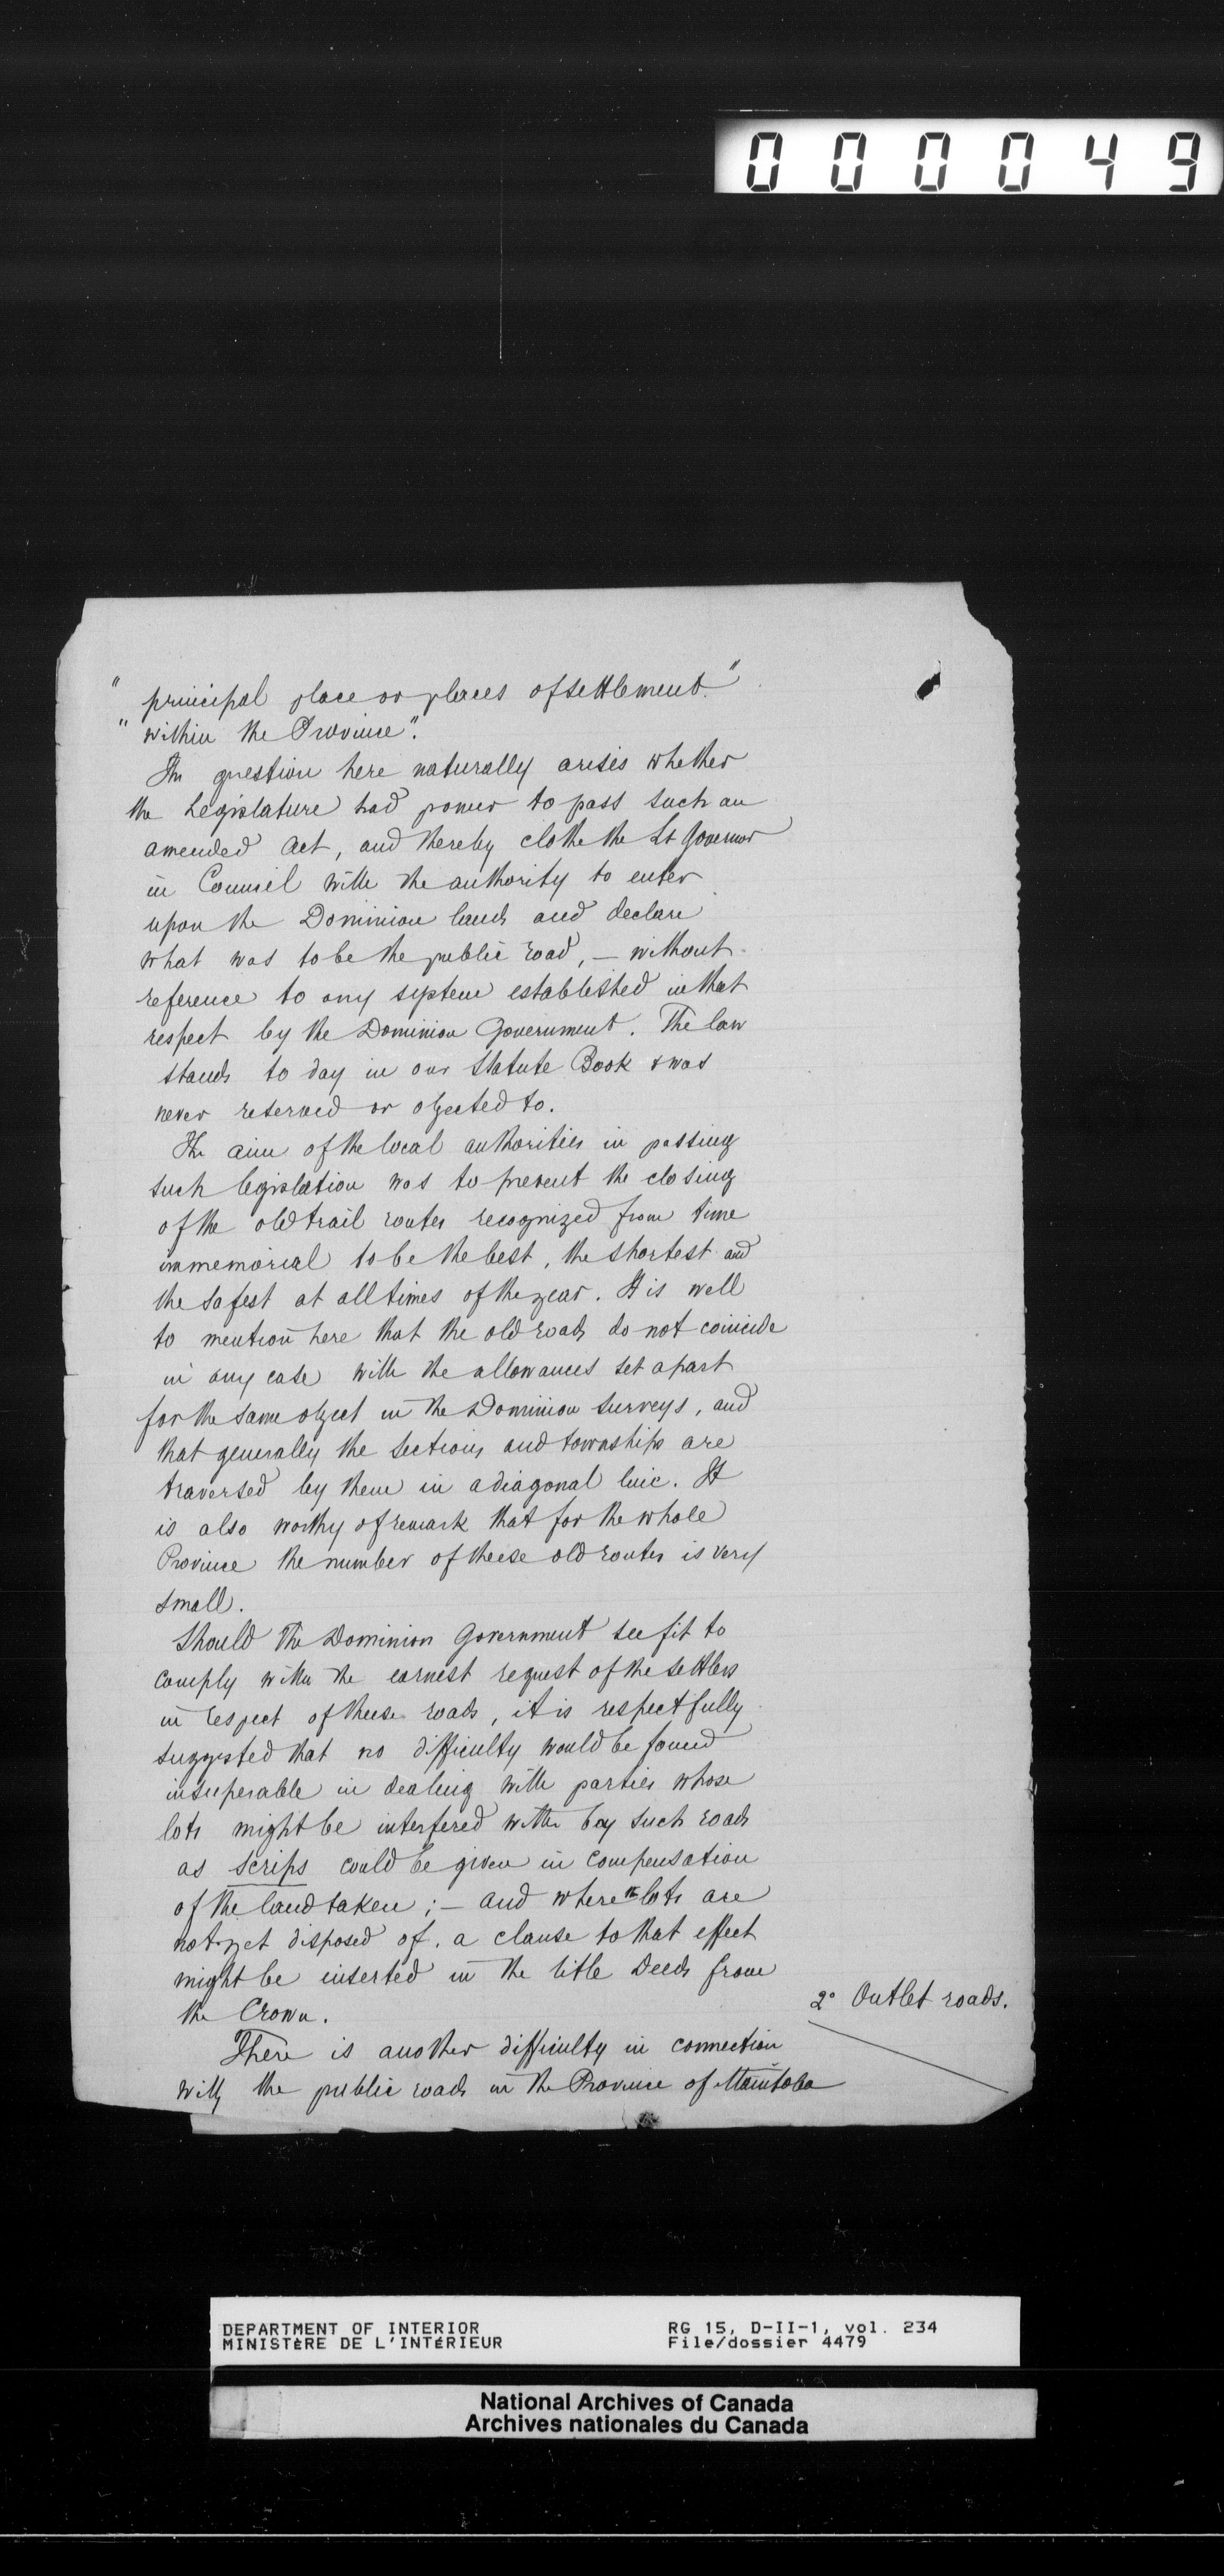 000049
" principal place or places of settlement."
" within the Province".
The question here naturally arises whether
the Legislature had power to pass such an
amended Act, and thereby clothe the Lt Governor
in Council with the authority to enter
upon the Dominion lands and declare
what was to be the public road, — without
reference to any system established in that
respect by the Dominion Government. The law
stands to day in our Statute Book & was
never reserved or objected to.
The aim of the local authorities in passing
such legislation was to prevent the closing
of the old trail routes recognized from time
immemorial to be the best, the shortest and
the safest at all times of the year. It is well
to mention here that the old roads do not coincide
in any case with the allowances set apart
for the same object in the Dominion Surveys, and
that generally the sections and townships are
traversed by them in a diagonal line. It
is also worthy of remark that for the whole
Province the number of these old routes is very
small.
Should the Dominion Government see fit to
comply with the earnest request of the settlers
in respect of these roads, it is respectfully
suggested that no difficulty would be found
insuperable in dealing with parties whose
lots might be interfered with by such roads
as scrips could be given in compensation
of the land taken; — and where the lots are
not yet disposed of, a clause to that effect
might be inserted in the title Deeds from
the Crown.
2° Outlet roads.
There is another difficulty in connection
with the public roads in the Province of Manitoba
DEPARTMENT OF INTERIOR
MINISTÈRE DE L'INTÉRIEUR
RG 15, D-II-1, vol. 234
File/dossier 4479
National Archives of Canada
Archives nationales du Canada